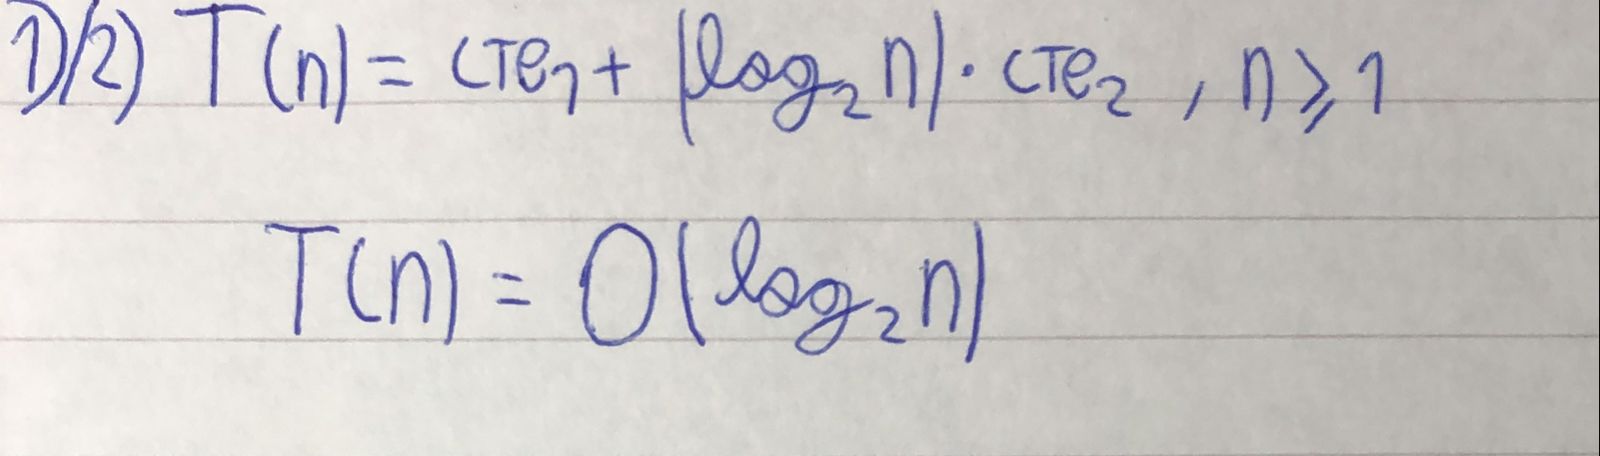 1)/2) T(n) = cTe₁ + (log₂ n) · cTe₂ , n ≥ 1
T(n) = O(log₂ n)